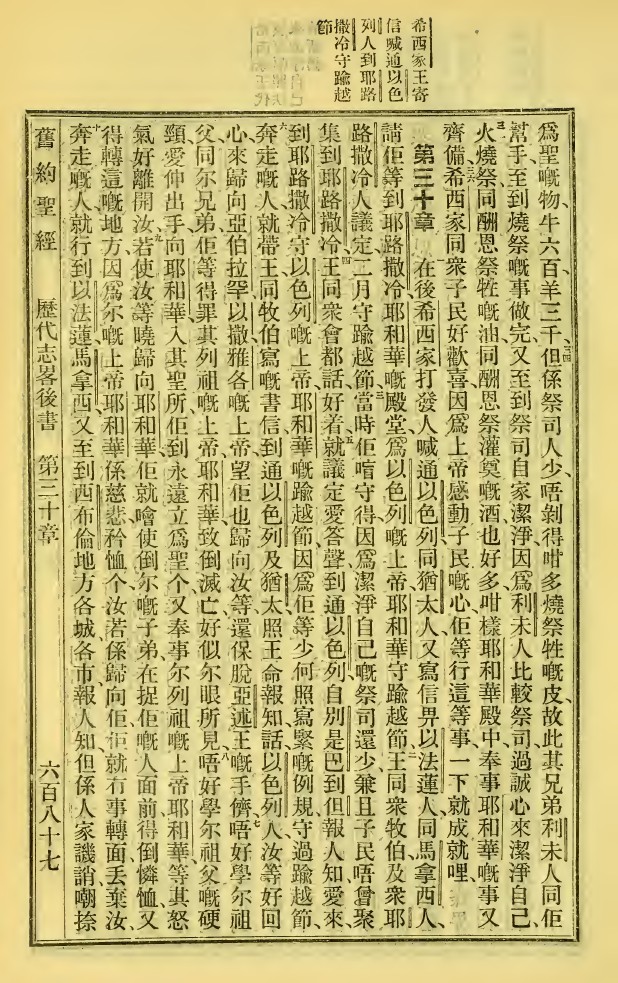 希西家王寄
信喊通以色
列人到耶路
撒冷守踰越
節
為聖嘅物、牛六百羊三千、三四但係祭司人少、唔剝得咁多燒祭牲嘅皮、故此其兄弟利未人同佢
幫手、至到燒祭嘅事做完、又至到祭司自家潔淨、因為利未人比較祭司過誠心來潔淨自己、
三五火燒祭同酬恩祭牲嘅油、同酬恩祭灌奠嘅酒也好多、咁樣耶和華殿中奉事耶和華嘅事又
齊備、三六希西家同衆子民好歡喜、因為上帝感動子民嘅心、佢等行這等事、一下就成就哩、
第三十章 一在後希西家打發人喊通以色列同猶太人、又寫信畀以法蓮人同馬拿西人、
請佢等到耶路撒冷耶和華嘅殿堂、為以色列嘅上帝耶和華守踰越節、二王同衆牧伯及衆耶
路撒冷人議定二月守踰越節、三當時佢唔守得、因為潔淨自己嘅祭司還少、兼且子民唔曾聚
集到耶路撒冷、四王同衆會都話好着、五就議定愛答聲到通以色列、自別是巴到但、報人知愛來
到耶路撒冷守以色列嘅上帝耶和華嘅踰越節、因為佢等少何照寫緊嘅例規守過踰越節、
六奔走嘅人就帶王同牧伯寫嘅書信、到通以色列及猶太、照王命報知話、以色列人汝等好回
心來歸向亞伯拉罕以撒雅各嘅上帝、望佢也歸向汝等還保脫亞述王嘅手儕、七唔好學尔祖
父同尔兄弟、佢等得罪其列祖嘅上帝耶和華、致到滅亡、好似尔眼所見、八唔好學尔祖父嘅硬
頸、愛伸出手向耶和華、入其聖所、佢到永遠立為聖个、又奉事尔列祖嘅上帝耶和華、等其怒
氣好離開汝、九若使汝等曉歸向耶和華、佢就噲使倒尔嘅子弟、在捉佢嘅人面前得倒憐恤、又
得轉這嘅地方、因為尔嘅上帝耶和華係慈悲矜恤个、汝若係歸向佢、佢就冇事轉面丟棄汝、
十奔走嘅人就行到以法蓮馬拿西、又至到西布倫地方各城各市報人知、但係人家譏誚嘲捺
舊約聖經 歷代志畧後書 第三十章 六百八十七